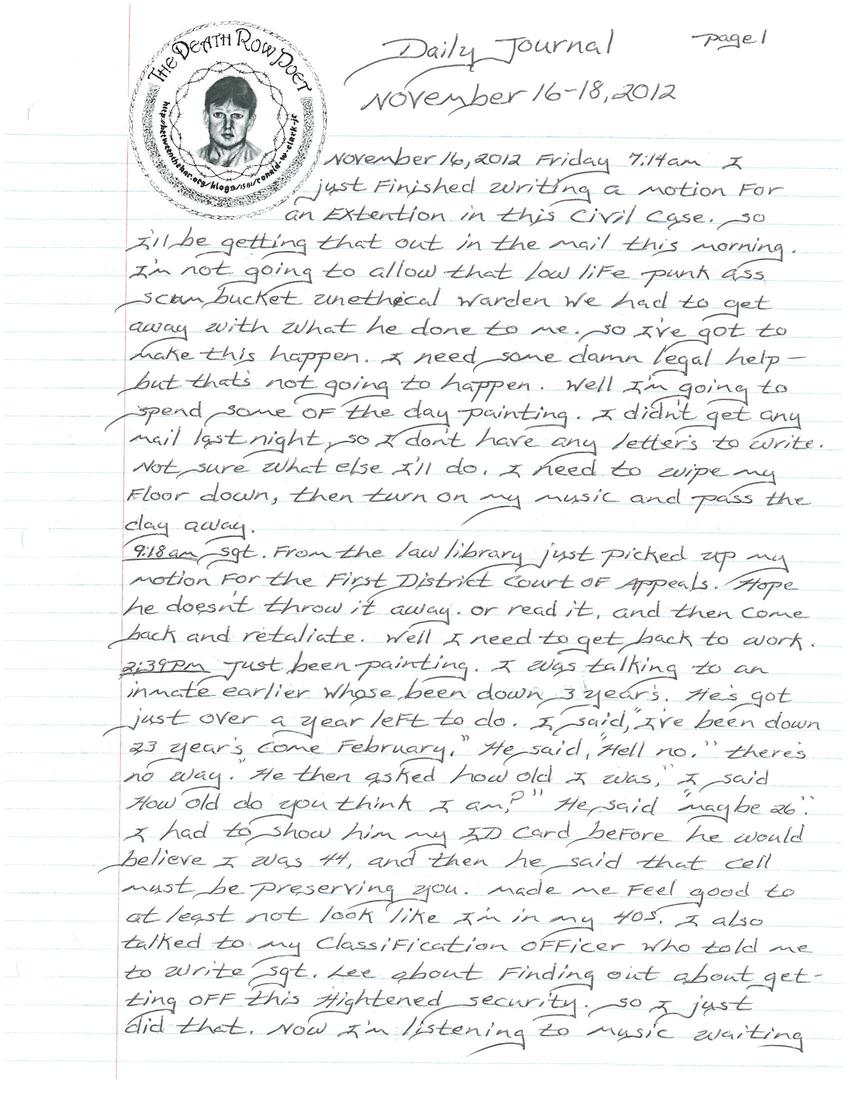 THE DEATH ROW POET
http://betweenthebar.org/blogs/1581/ronald-w-clark-jr
Daily Journal
page 1
November 16-18, 2012
November 16, 2012 Friday 7:14am I
just Finished writing a motion For
an EXtention in this Civil Case. so
I'll be getting that out in the mail this morning.
I'm not going to allow that low life punk ass
scum bucket unethical warden we had to get
away with what he done to me. so I've got to
make this happen. I need some damn legal help -
but that's not going to happen. Well I'm going to
spend some OF the day painting. I didn't get any
mail last night, so I don't have any letter's to write.
Not sure what else I'll do. I need to wipe my
Floor down, then turn on my music and pass the
day away.
9:18am sgt. From the law library just picked up my
motion For the First District Court OF Appeals. Hope
he doesn't throw it away. or read it, and then come
back and retaliate. Well I need to get back to work.
2:39PM Just been painting. I was talking to an
inmate earlier whose been down 3 year's. He's got
just over a year left to do. I said, "I've been down
23 year's come February." He said, "Hell no." there's
no way." He then asked how old I was," I said
How old do you think I am?" He said "maybe 26".
I had to show him my ID Card before he would
believe I was 44, and then he said that cell
must be preserving you. made me Feel good to
at least not look like I'm in my 40s. I also
talked to my Classification OFFicer who told me
to write sgt. Lee about Finding out about get-
ting OFF this Hightened security. so I just
did that. Now I'm listening to music waiting